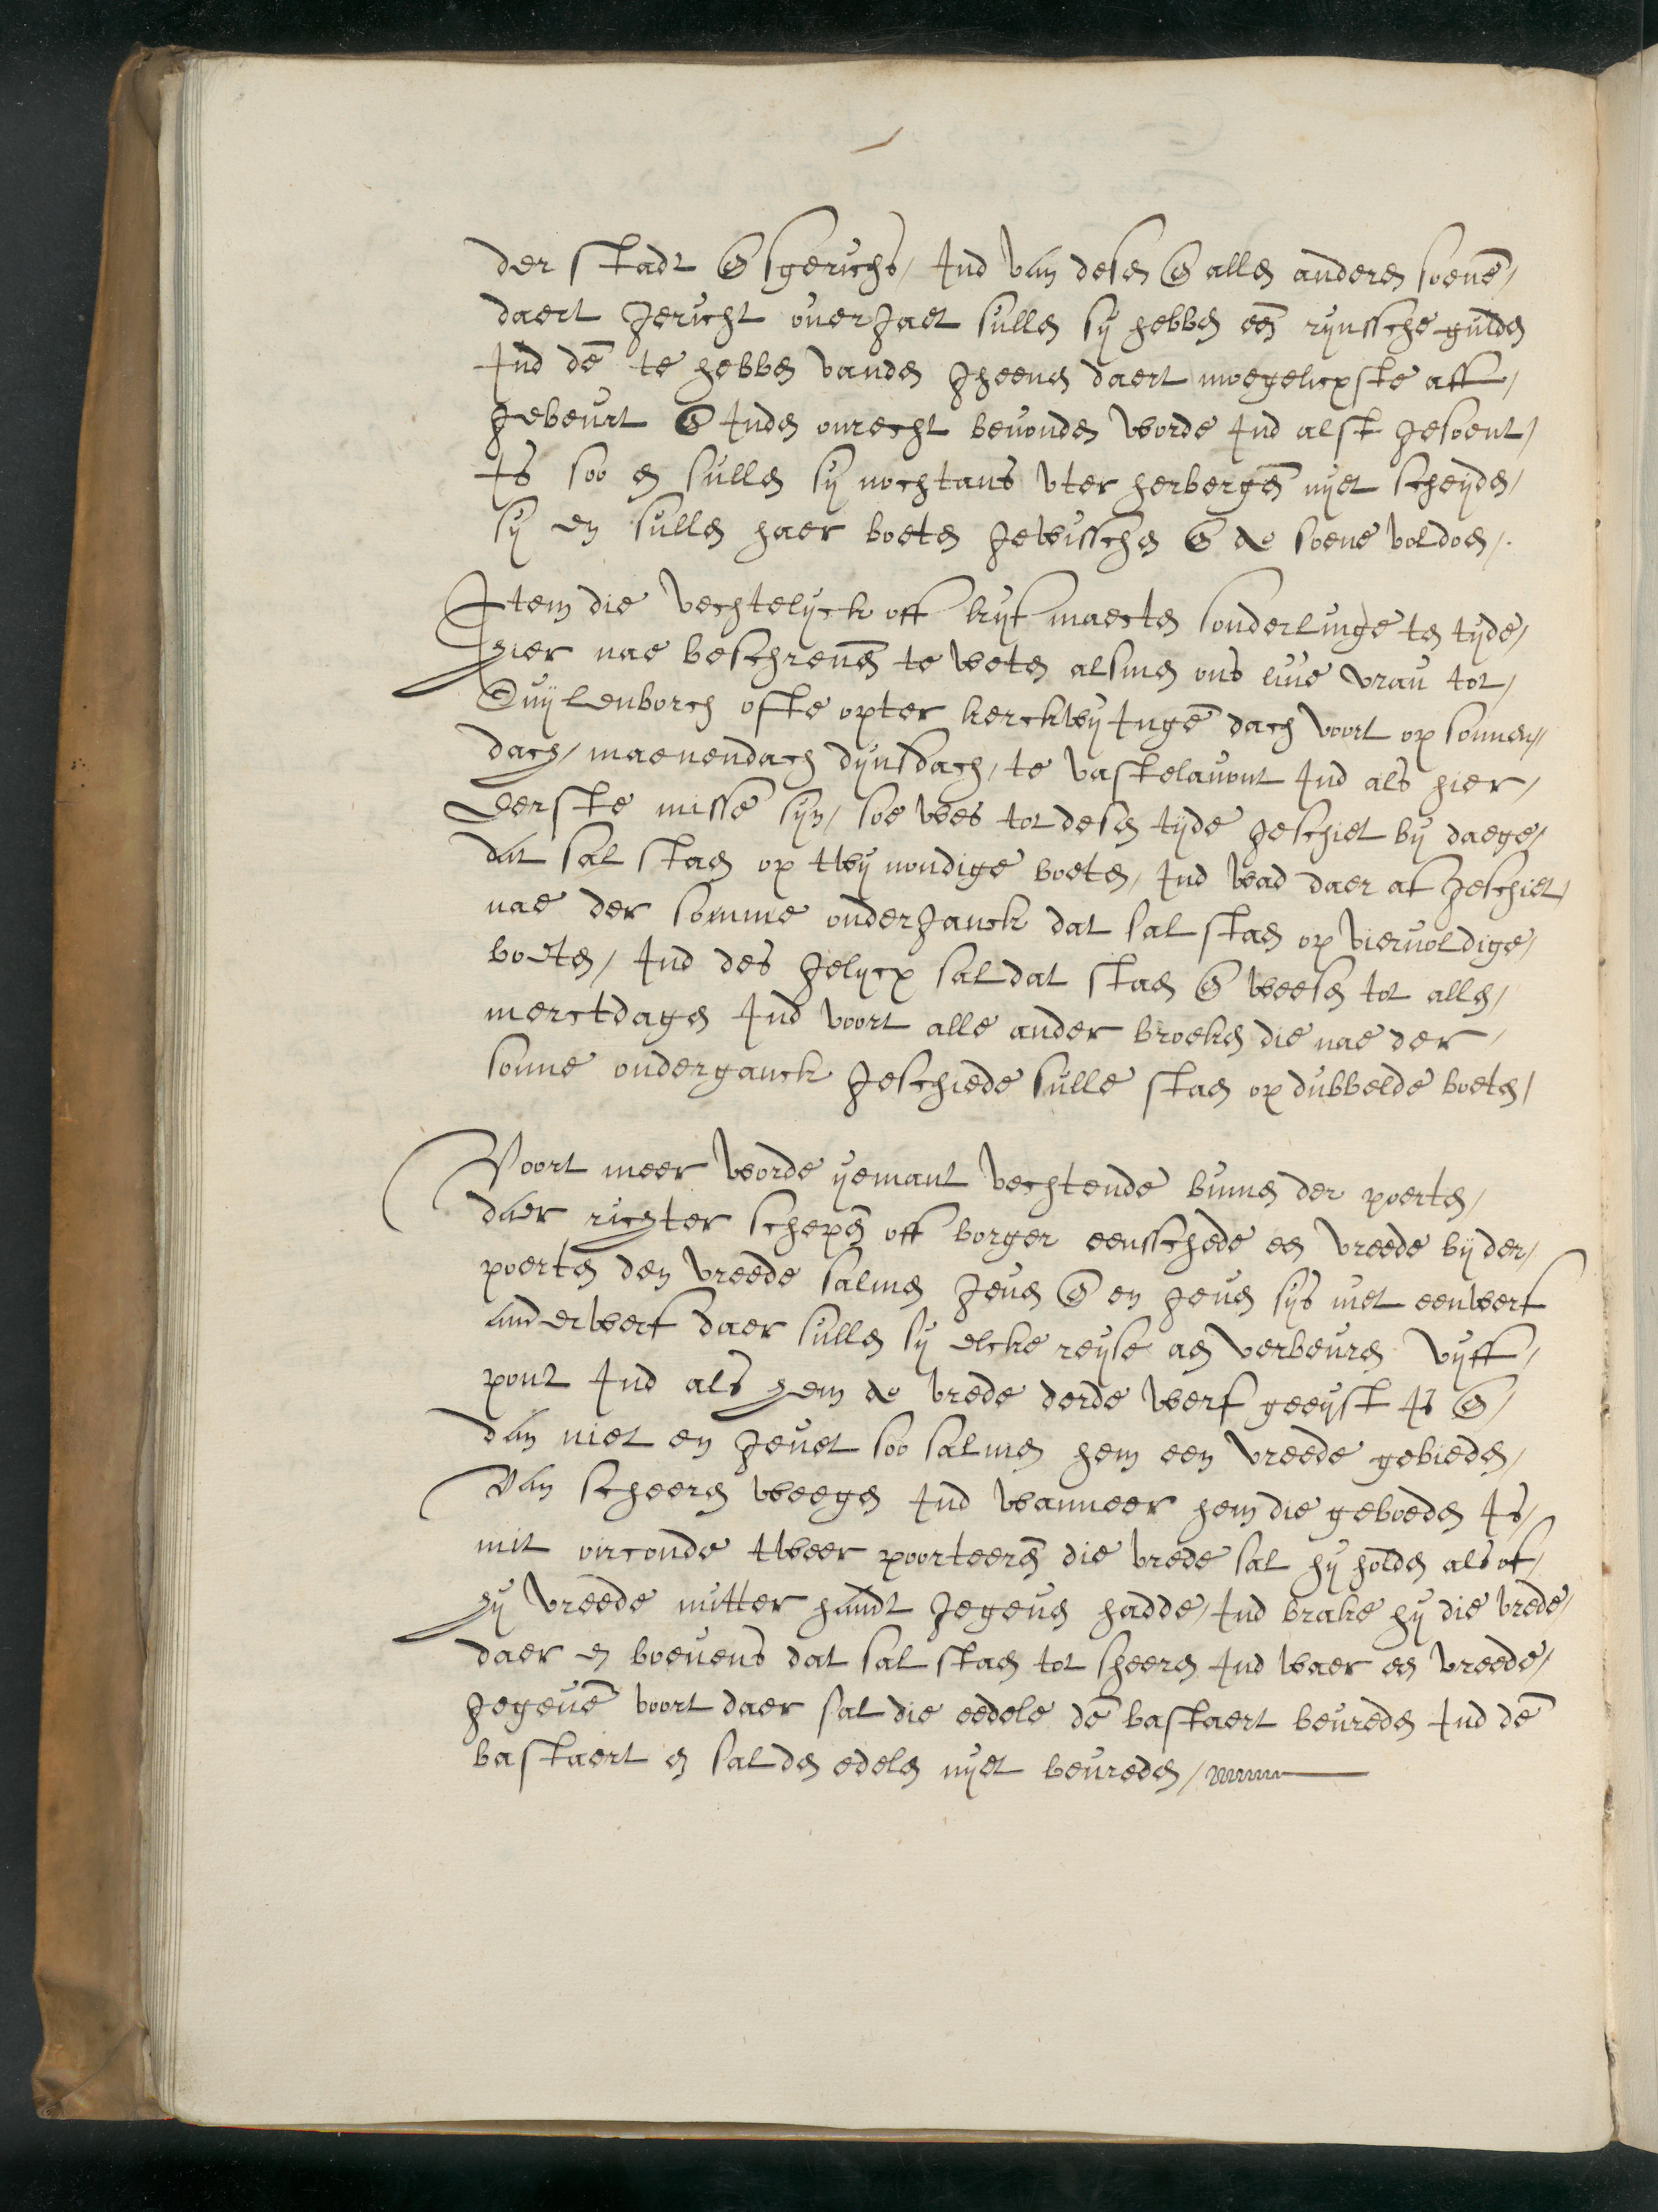 der stadt en sgerichs, Ind van desen en allen anderen soenē,
daert gericht over gaet sullen sy hebben een rynssche gulden
Ind dē te hebben vanden gheenen daert moegelicxste aff,
gebeurt en Inden onrecht bevonden worde Ind alst gesoent,
Is soo en sullen sy nochtans vter herbergē nyet scheyden,
sy en sullen haer boeten gewisschen en de soene voldoen,.
Item die vechtelyck off kyf maecten sonderlinge ten tyde,
Hier nae beschrevē te weten alsmen ons live vrau tot,
Cuylenborch ofte opter kerckwyingē dach voort op sonnen,,
dach, maenendach dynsdach, te vastelavont Ind als hier,
Eerste misse syn, soe wes tot desen tyde geschiet by daege,
dat sal staen op twynondige boeten, Ind wad daer af geschiet,
nae der somme onderganck dat sal staen op viervoldige,
boeten, Ind des gelycx sal dat staen en weesen tot allen,
merctdagen Ind voort alle ander broeken die nae der,
sonne onderganck geschiede sulle staen op dubbelde boeten,
Voort meer worde yemant vechtende binnen der poerten,
daer richter schepē off borger eensschede een vreede by der,
poerten den vreede salmen geven en en geven sys niet eenwerf
anderwerf daer sullen sy elcke reyse aen verbeuren vyff,
pont Ind als hem de vrede derde werf geeyst Is en,
dan niet en gevet soo salmen hem een vreede gebieden,
Van scheeren weegen Ind wanneer hem die geboeden Is,
mit oirconde tweer poorteerē die vrede sal hy holden als of,
hy vreede mitter handt gegeven hadde, Ind brake hy die vrede,
daer en boevens dat sal staen tot sheeren Ind waer een vreede,
gegevē voort daer sal die eedele dē bastaert bevreden Ind dē
bastaert en sal den edelen nyet bevreden,